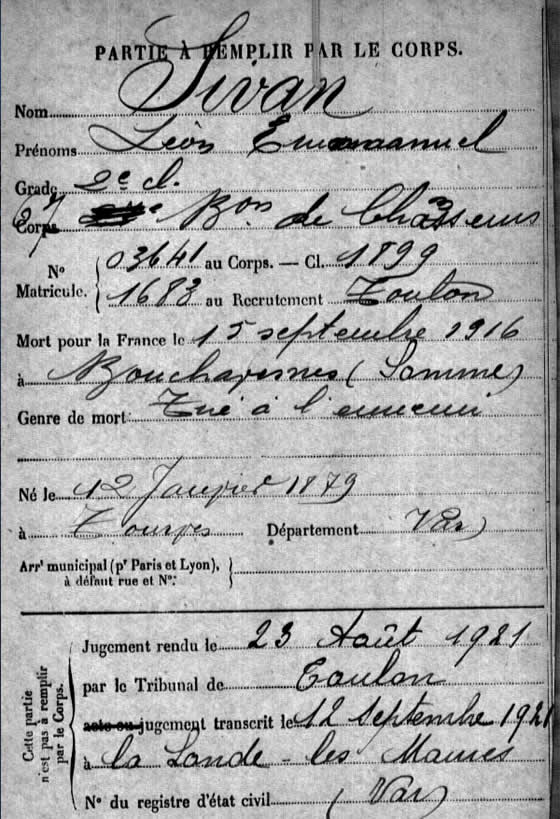 PARTIE À REMPLIR PAR LE CORPS.
Nom Sivan
Prénoms Léon Emmanuel
Grade 2e cl.
Corps 67 Bon de Chasseurs
N° Matricule. 03641 au Corps. — Cl. 1899
1683 au Recrutement Toulon
Mort pour la France le 15 septembre 1916
à Bouchavesnes (Somme)
Genre de mort Tué à l'ennemi
Né le 12 Janvier 1879
à Tourves Département Var
Arrt municipal (pr Paris et Lyon),
à défaut rue et N°.
Cette partie n'est pas à remplir par le Corps.
Jugement rendu le 23 Août 1921
par le Tribunal de Toulon
acte ou jugement transcrit le 12 Septembre 1921
à la Londe-les Maures
N° du registre d'état civil (Var)